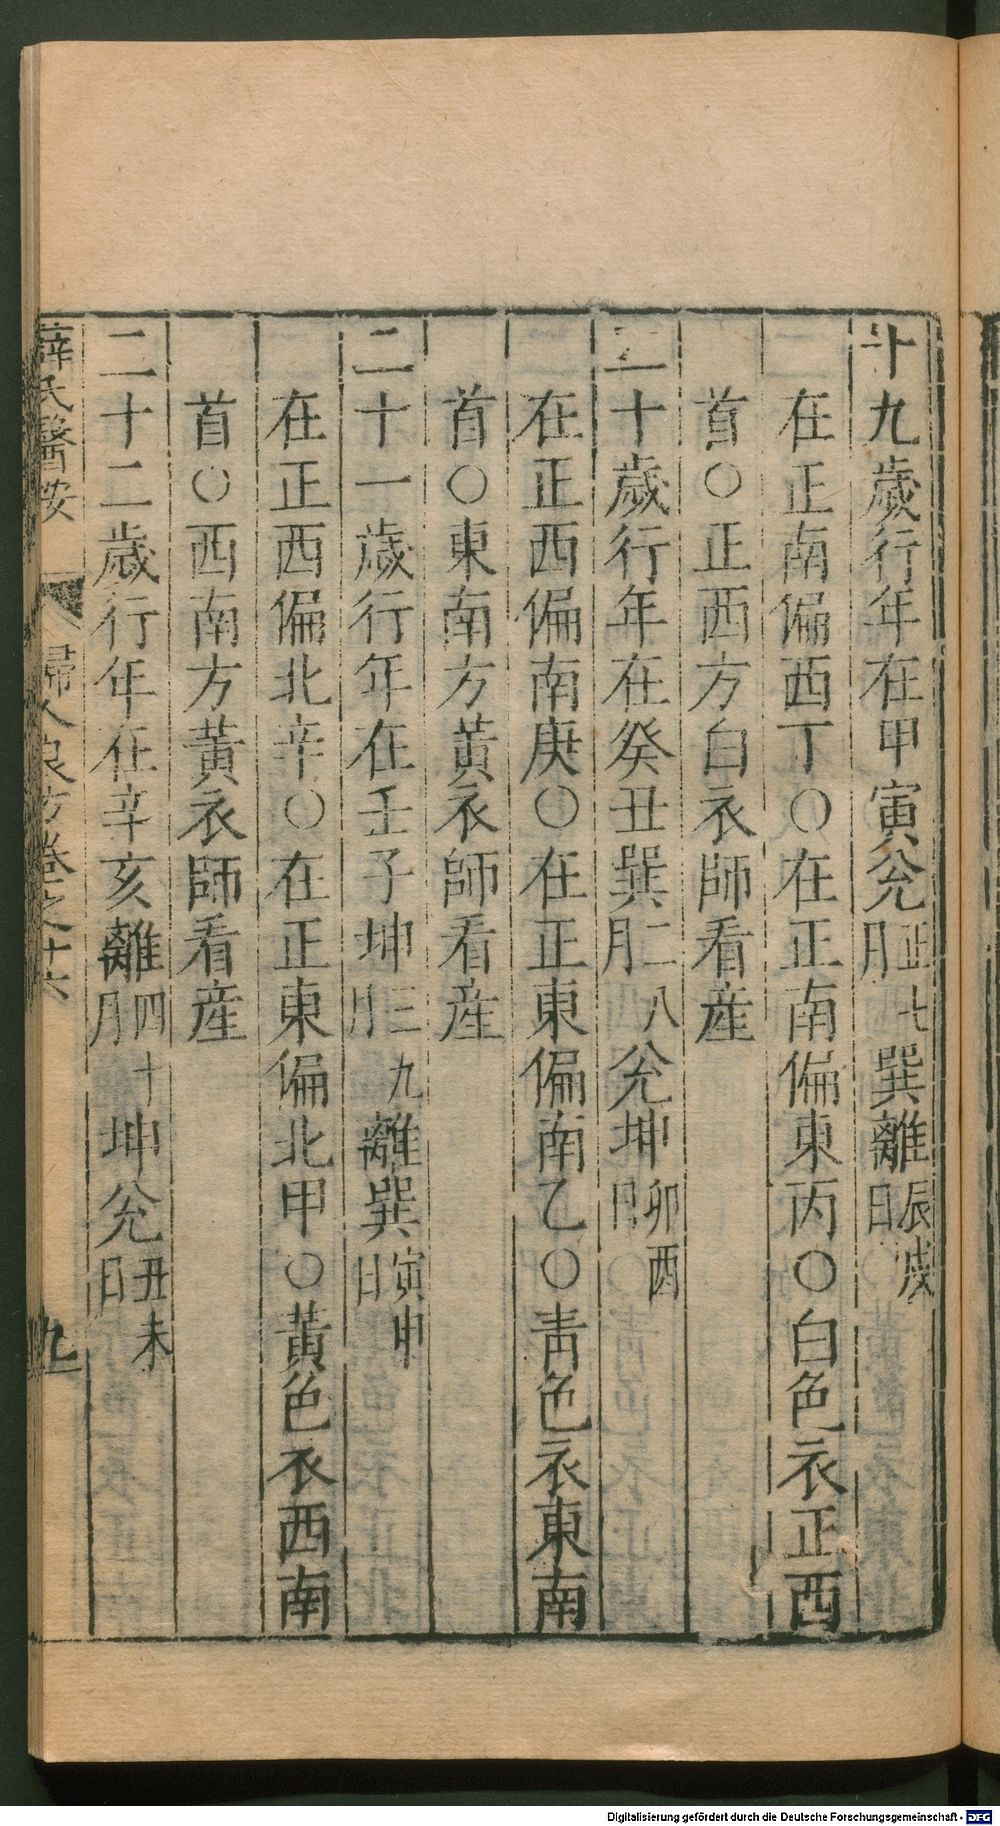 十九歲行年在甲寅兊正七月巽離辰戌日
在正南偏西丁○在正南偏東丙○白色衣正西
首○正西方白衣師看産
二十歲行年在癸丑巽二八月兊坤卯酉日
在正西偏南庚○在正東偏南乙○靑色衣東南
首○東南方黃衣師看産
二十一歲行年在壬子坤三九月離巽寅申日
在正西偏北辛○在正東偏北甲○黃色衣西南
首○西南方黃衣師看産
二十二歲行年在辛亥離四十月坤兊丑未日
薛氏醫按 婦人良方卷之十六 九
Digitalisierung gefördert durch die Deutsche Forschungsgemeinschaft - DFG